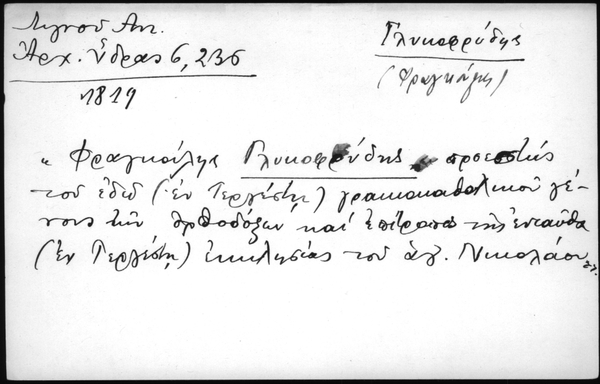 Λιγνοῦ Ἀν.
Ἀρχ. Ὕδρας 6, 236
1819
Γλυκοφρύδης
(Φραγκούλης)
" Φραγκούλης Γλυκοφρύδης, προεστὼς
τοῦ ἐδῶ (ἐν Τεργέστῃ) γραικοκαθολικοῦ γέ-
νους τῶν ὀρθοδόξων καὶ ἐπίτροπος τῆς ἐνταῦθα
(ἐν Τεργέστῃ) ἐκκλησίας τοῦ ἁγ. Νικολάου